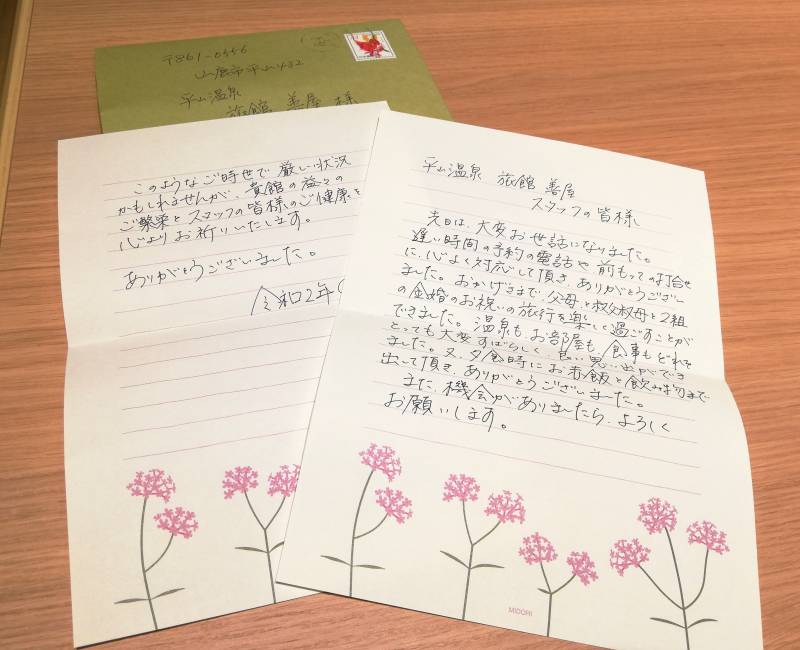 〒861-0556
山鹿市平山432
平山温泉
旅館 善屋 様
平山温泉 旅館 善屋
スタッフの皆様
先日は、大変お世話になりました。
遅い時間の予約の電話や 前もっての打合せ
に、心よく対応して頂き、ありがとうござい
ました。おかげさまで、父母と叔父叔母と2組
の金婚のお祝いの旅行を楽しく過ごすことが
できました。温泉もお部屋も、食事もどれを
とっても大変すばらしく、良い思い出ができ
ました。又、夕食時にお赤飯と飲み物まで
出して頂き、ありがとうございました。
また、機会がありましたら、よろしく
お願いします。
MIDORI
このようなご時世で 厳しい状況
かもしれませんが、貴館の益々の
ご繁栄とスタッフの皆様のご健康を
心よりお祈りいたします。
ありがとうございました。
令和2年